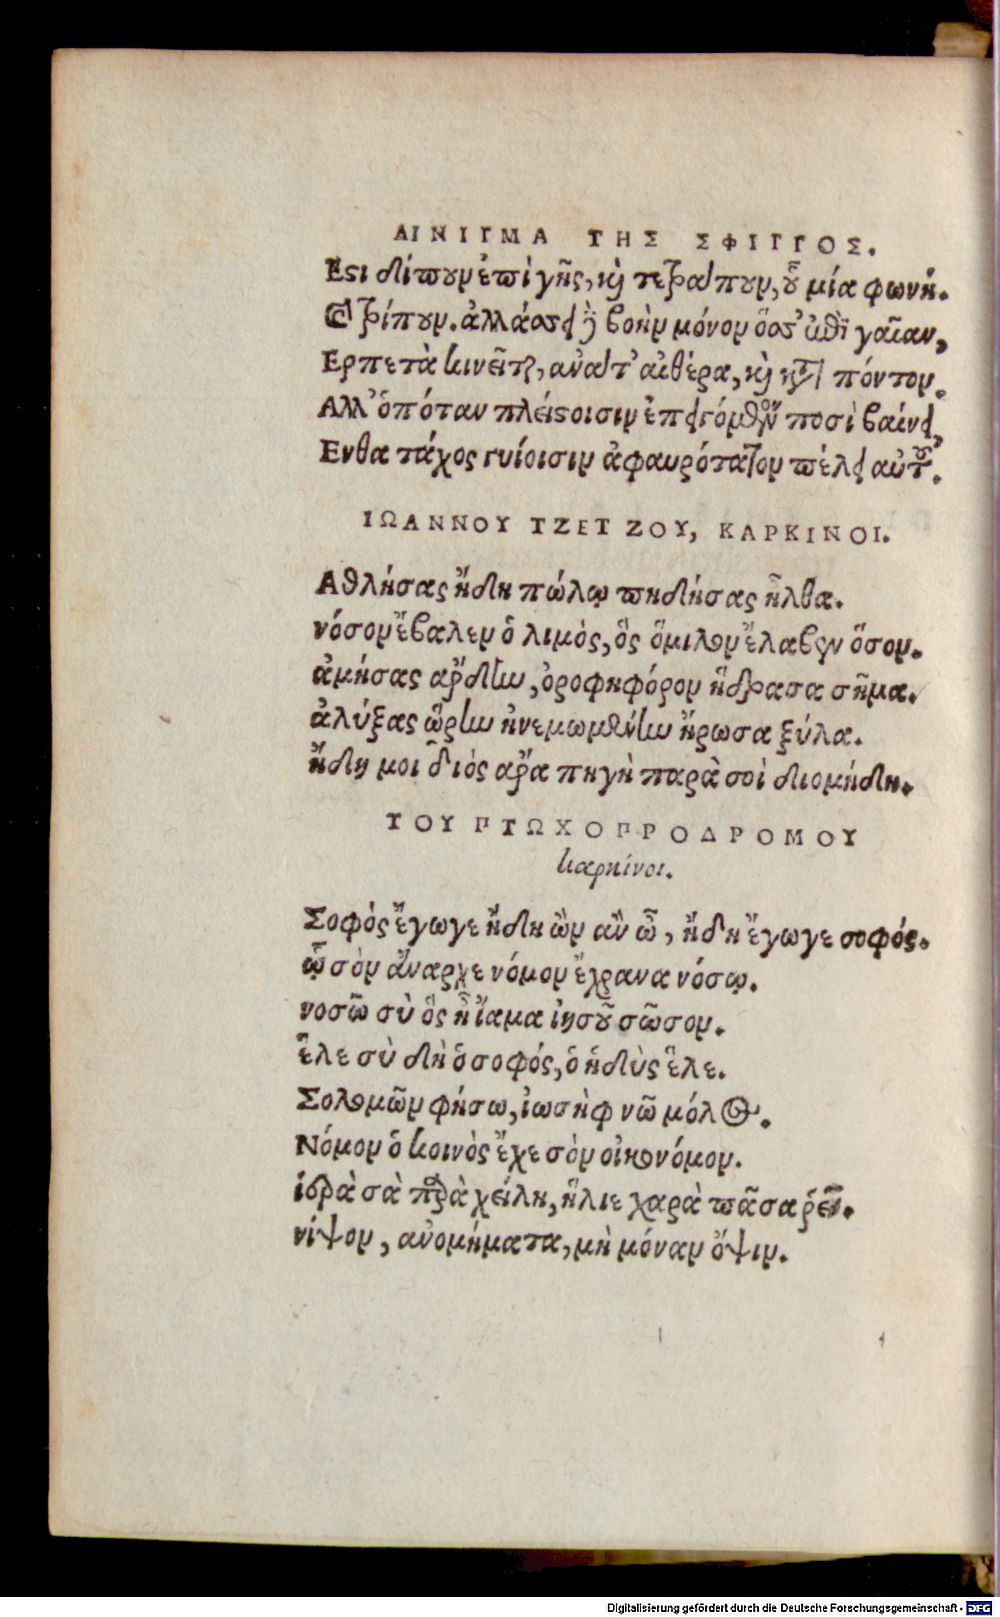 ΑΙΝΙΓΜΑ ΤΗΣ ΣΦΙΓΓΟΣ.
Εϛι δίπουν ἐπὶ γῆς, καὶ τετραπουν, οὗ μία φωνή.
Καὶ τρίπουν. ἀλλάασει δὲ βοὴν μόνον ὅασ' ἐπὶ γαῖαν,
Ερπετὰ κινεῖται, ἀνατ' αἰθέρα, καὶ κατὰ πόντον.
Αλλ' ὁπόταν πλείϛοισιν ἐπειγόμενον ποσὶ βαίνει,
Ενθα τάχος γυίοισιν ἀφαυρότατον πέλει αὐτοῦ.
ΙΩΑΝΝΟΥ ΤΖΕΤΖΟΥ, ΚΑΡΚΙΝΟΙ.
Αθλήσας ἤδη πώλῳ πηδήσας ἦλθα.
νόσον ἔβαλεν ὁ λιμὸς, ὃς ὅμιλον ἔλαβεν ὅσον.
ἀμήσας ἄρδην, ὀροφηφόρον ἥδρασα σῆμα.
ἀλύξας ὥρην ἠνεμωμένην ἤρωσα ξύλα.
ἤδη μοι διὸς ἄρα πηγὴ παρὰ σοὶ διομήδη.
ΤΟΥ ΠΤΩΧΟΠΡΟΔΡΟΜΟΥ
καρκίνοι.
Σοφὸς ἔγωγε ἤδη ὢν ἂν ὦ, ἤδη ἔγωγε σοφός.
ᾧ σὸν ἄναρχε νόμον ἔχρανα νόσῳ.
νοσῶ σὺ ὃς ἦ ἴαμα ἰησοῦ σῶσον.
ἕλε σὺ δὴ ὁ σοφός, ὁ ἡδὺς ἕλε.
Σολομῶν φήσω, ἰωσὴφ νῶ μόλος.
Νόμον ὁ κοινὸς ἔχε σὸν οἰκονόμον.
ἱερὰ σὰ χείλη, ἥλιε χαρὰ πᾶσα ῥεῖ.
νίψον, ἀνομήματα, μὴ μόναν ὄψιν.
Digitalisierung gefördert durch die Deutsche Forschungsgemeinschaft - DFG